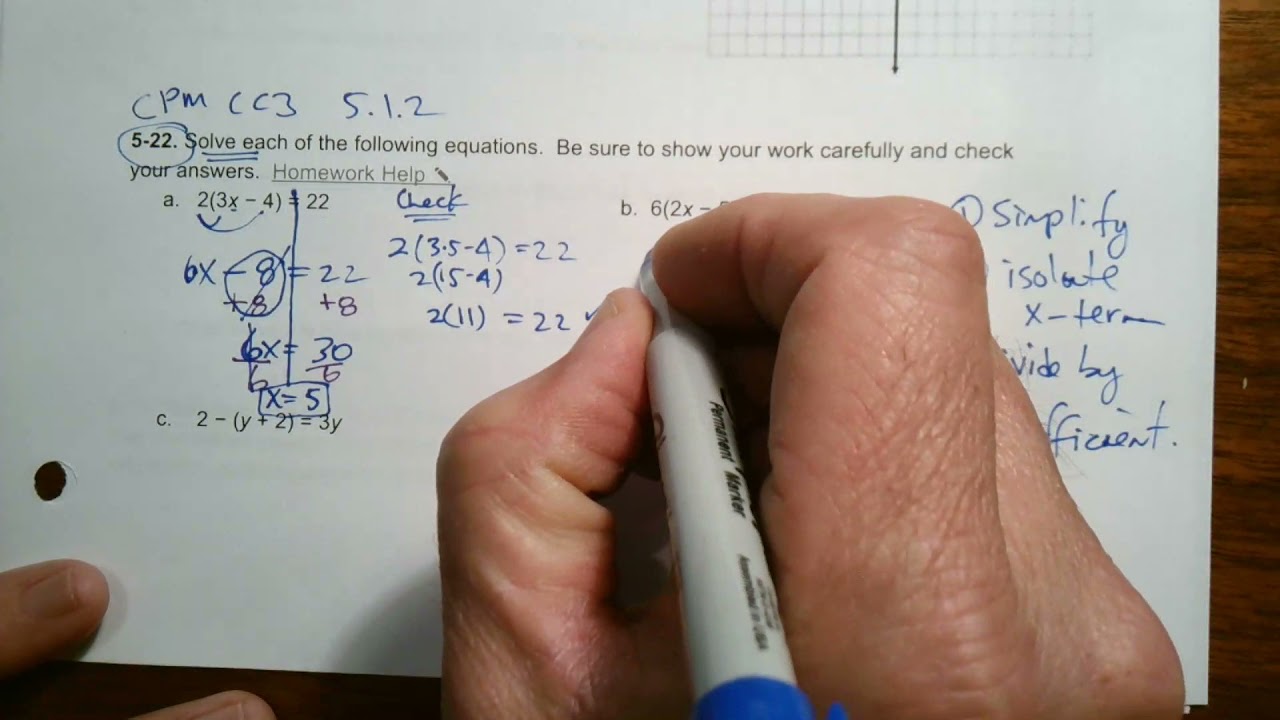 CPM CC3 5.1.2
5-22. Solve each of the following equations. Be sure to show your work carefully and check
your answers. Homework Help
a. 2(3x – 4) = 22
Check
2(3·5-4) = 22
2(15-4)
2(11) = 22 ✓
6x - 8 = 22
+8 +8
6x = 30
6 6
x = 5
b. 6(2x –
① Simplify
isolate
x-term
vide by
fficient.
c. 2 – (y + 2) = 3y
Permanent Marker